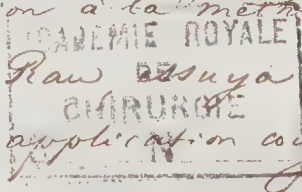 on à la mém
ACADEMIE ROYALE
Raw essuya
DE
CHIRURGIE
application co